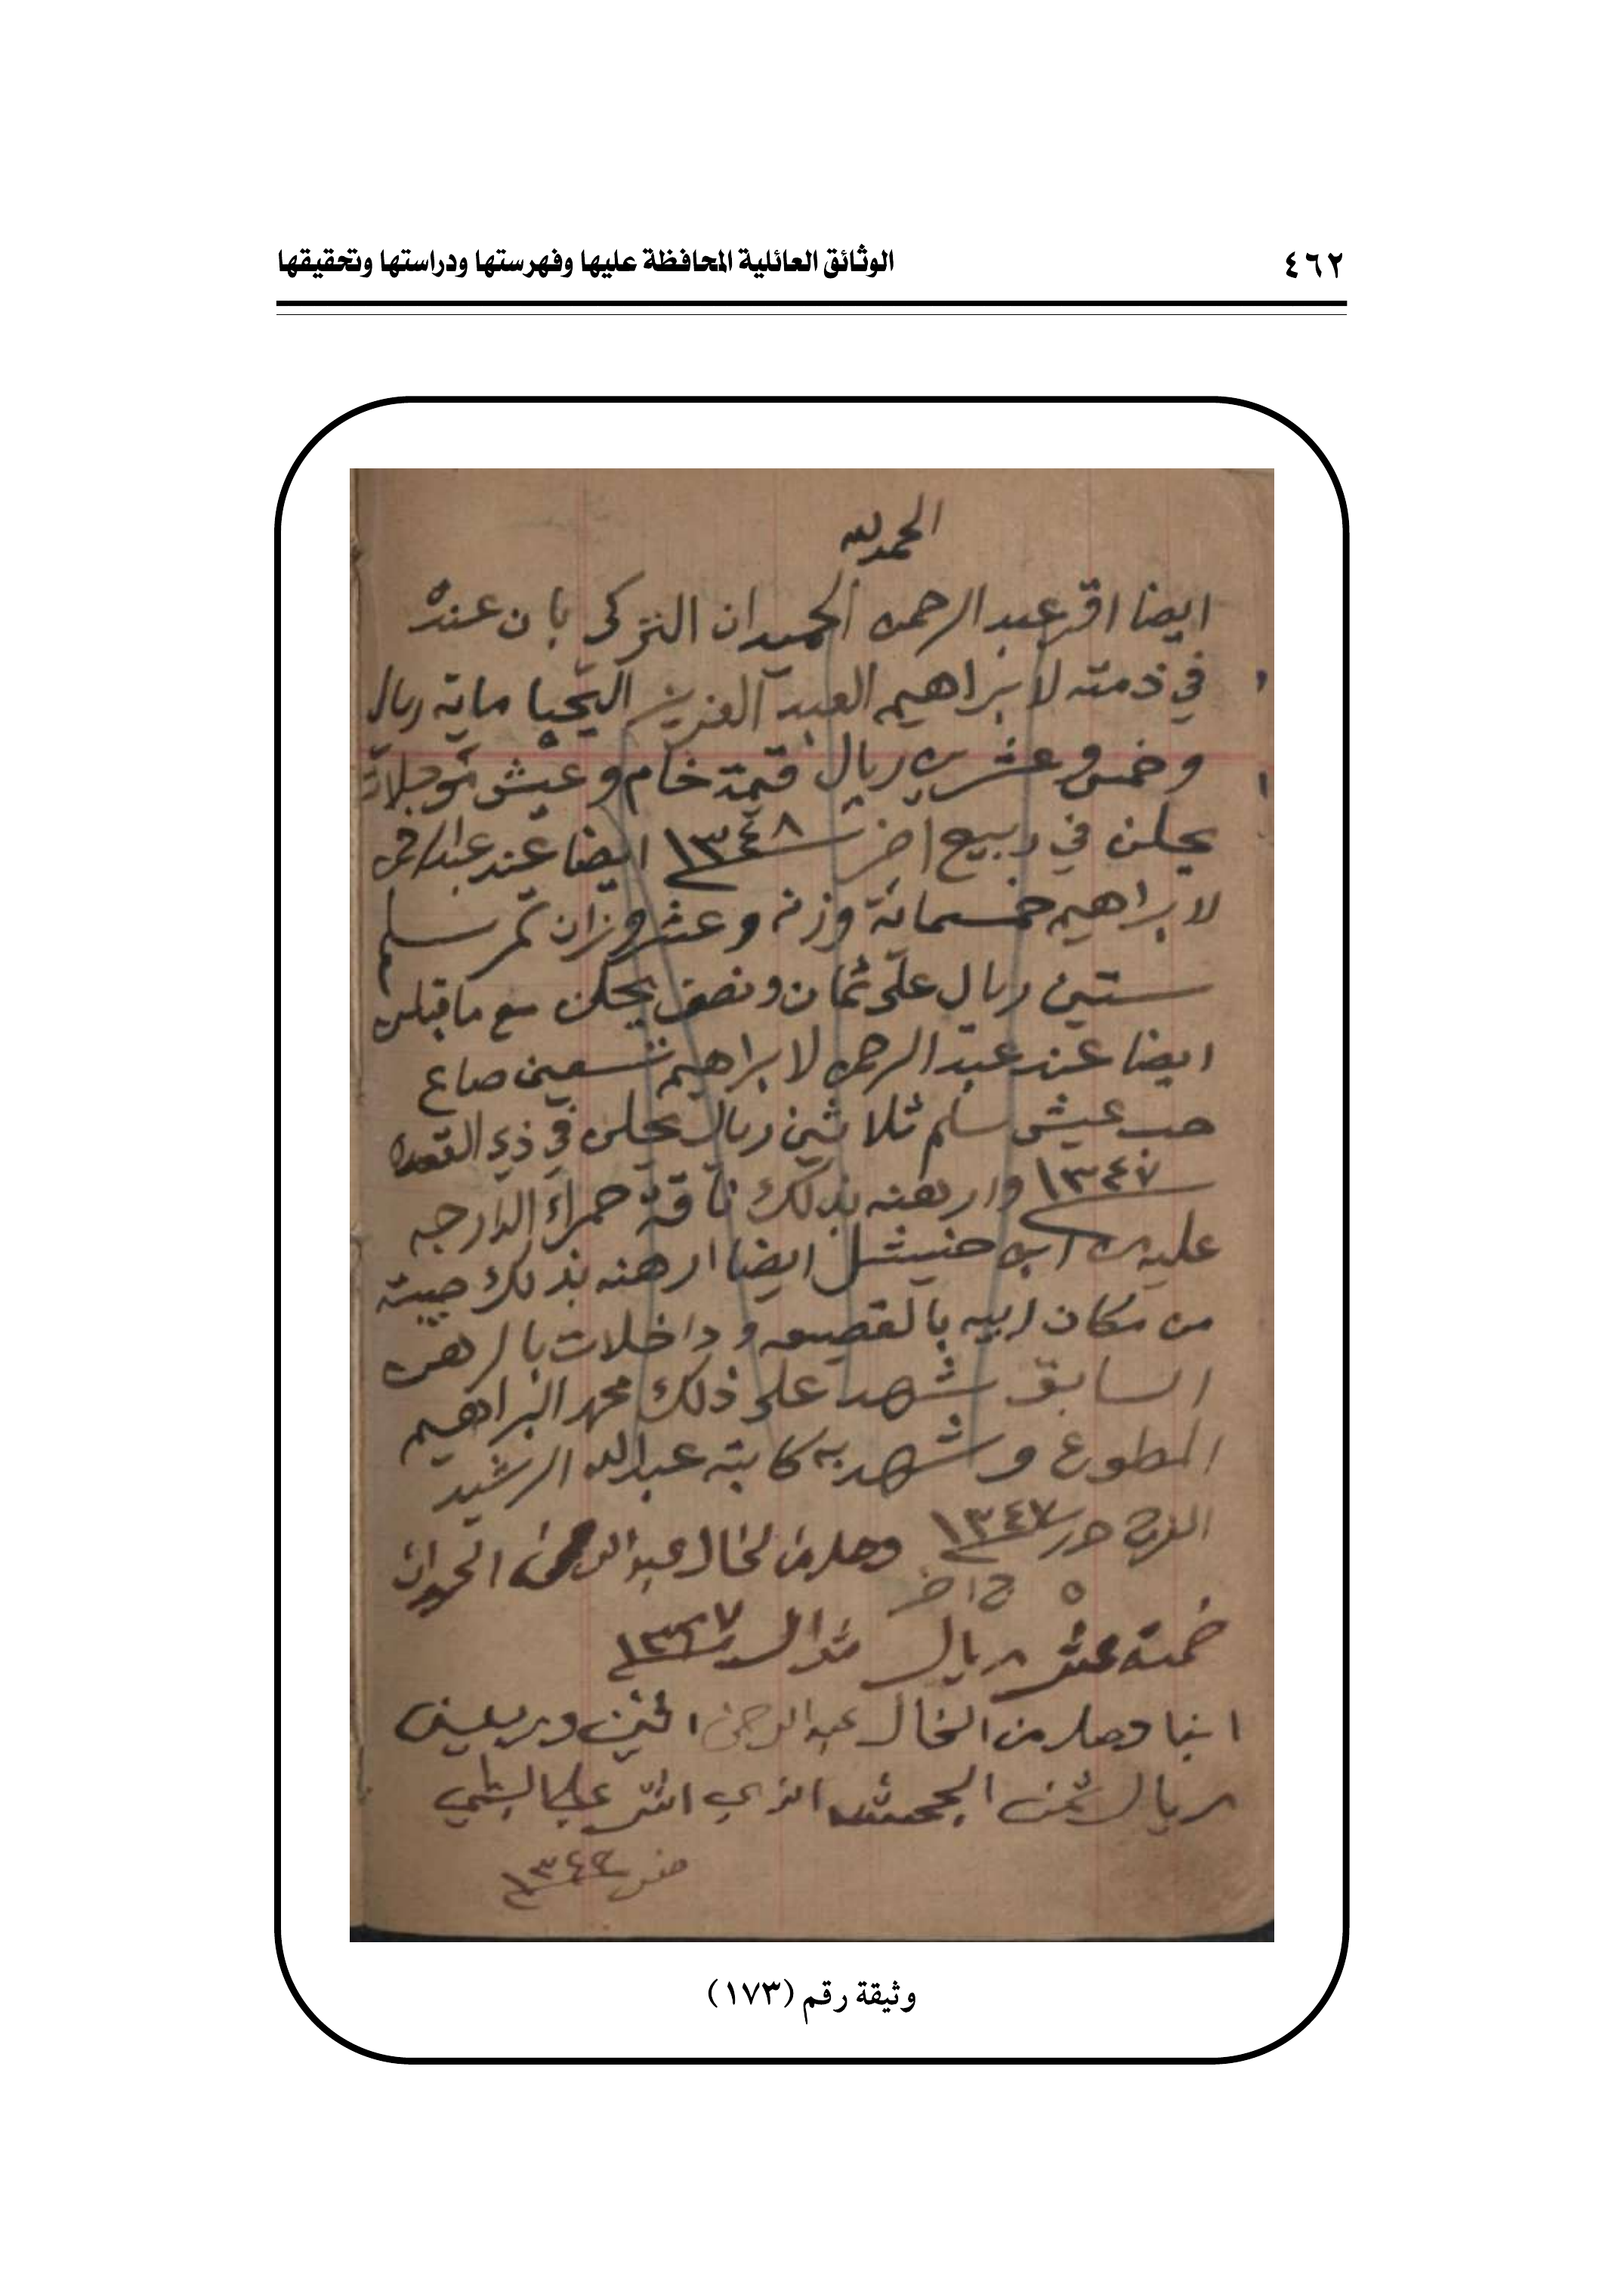 ٤٦٢
الوثائق العائلية المحافظة عليها وفهرستها ودراستها وتحقيقها
الحمد لله
ايضا اقر عبد الرحمن الحميدان التركي بان عنده
في ذمته لابراهيم العبد العزيز اليحيا ماية ريال
وخمس وعشرين ريال قيمة خام وعيش مؤجلات
يحلن في ربيع اخر ١٣٤٨ ايضا عند عبد الرحمن
لابراهيم خمسمائة وزنه وعشر وزان تمر سلم
ستين ريال على ثمان ونصف يحلن مع ما قبلهن
ايضا عند عبد الرحمن لابراهيم تسعين صاع
حب عيش سلم ثلاثين ريال يحلن في ذي القعدة
١٣٤٧ وارهنه بذلك ناقة حمراء الدارجه
عليه من ابن حنيشل ايضا ارهنه بذلك صيبته
من مكان ابيه بالقصيعه وداخلات بالرهن
السابق شهد على ذلك محمد البراهيم
المطوع وشهد به كاتبه عبد الله الرشيد
الفرج حرر ١٣٤٧
٥ ج اخر
وصل من الخال عبد الرحمن الحميدان
خمسة عشر ريال شوال ١٣٤٧
ايضا وصل من الخال عبد الرحمن اثنين وربعين
ريال ثمن الجحش الذي اشتر علي
صفر ١٣٤٩
وثيقة رقم (١٧٣)